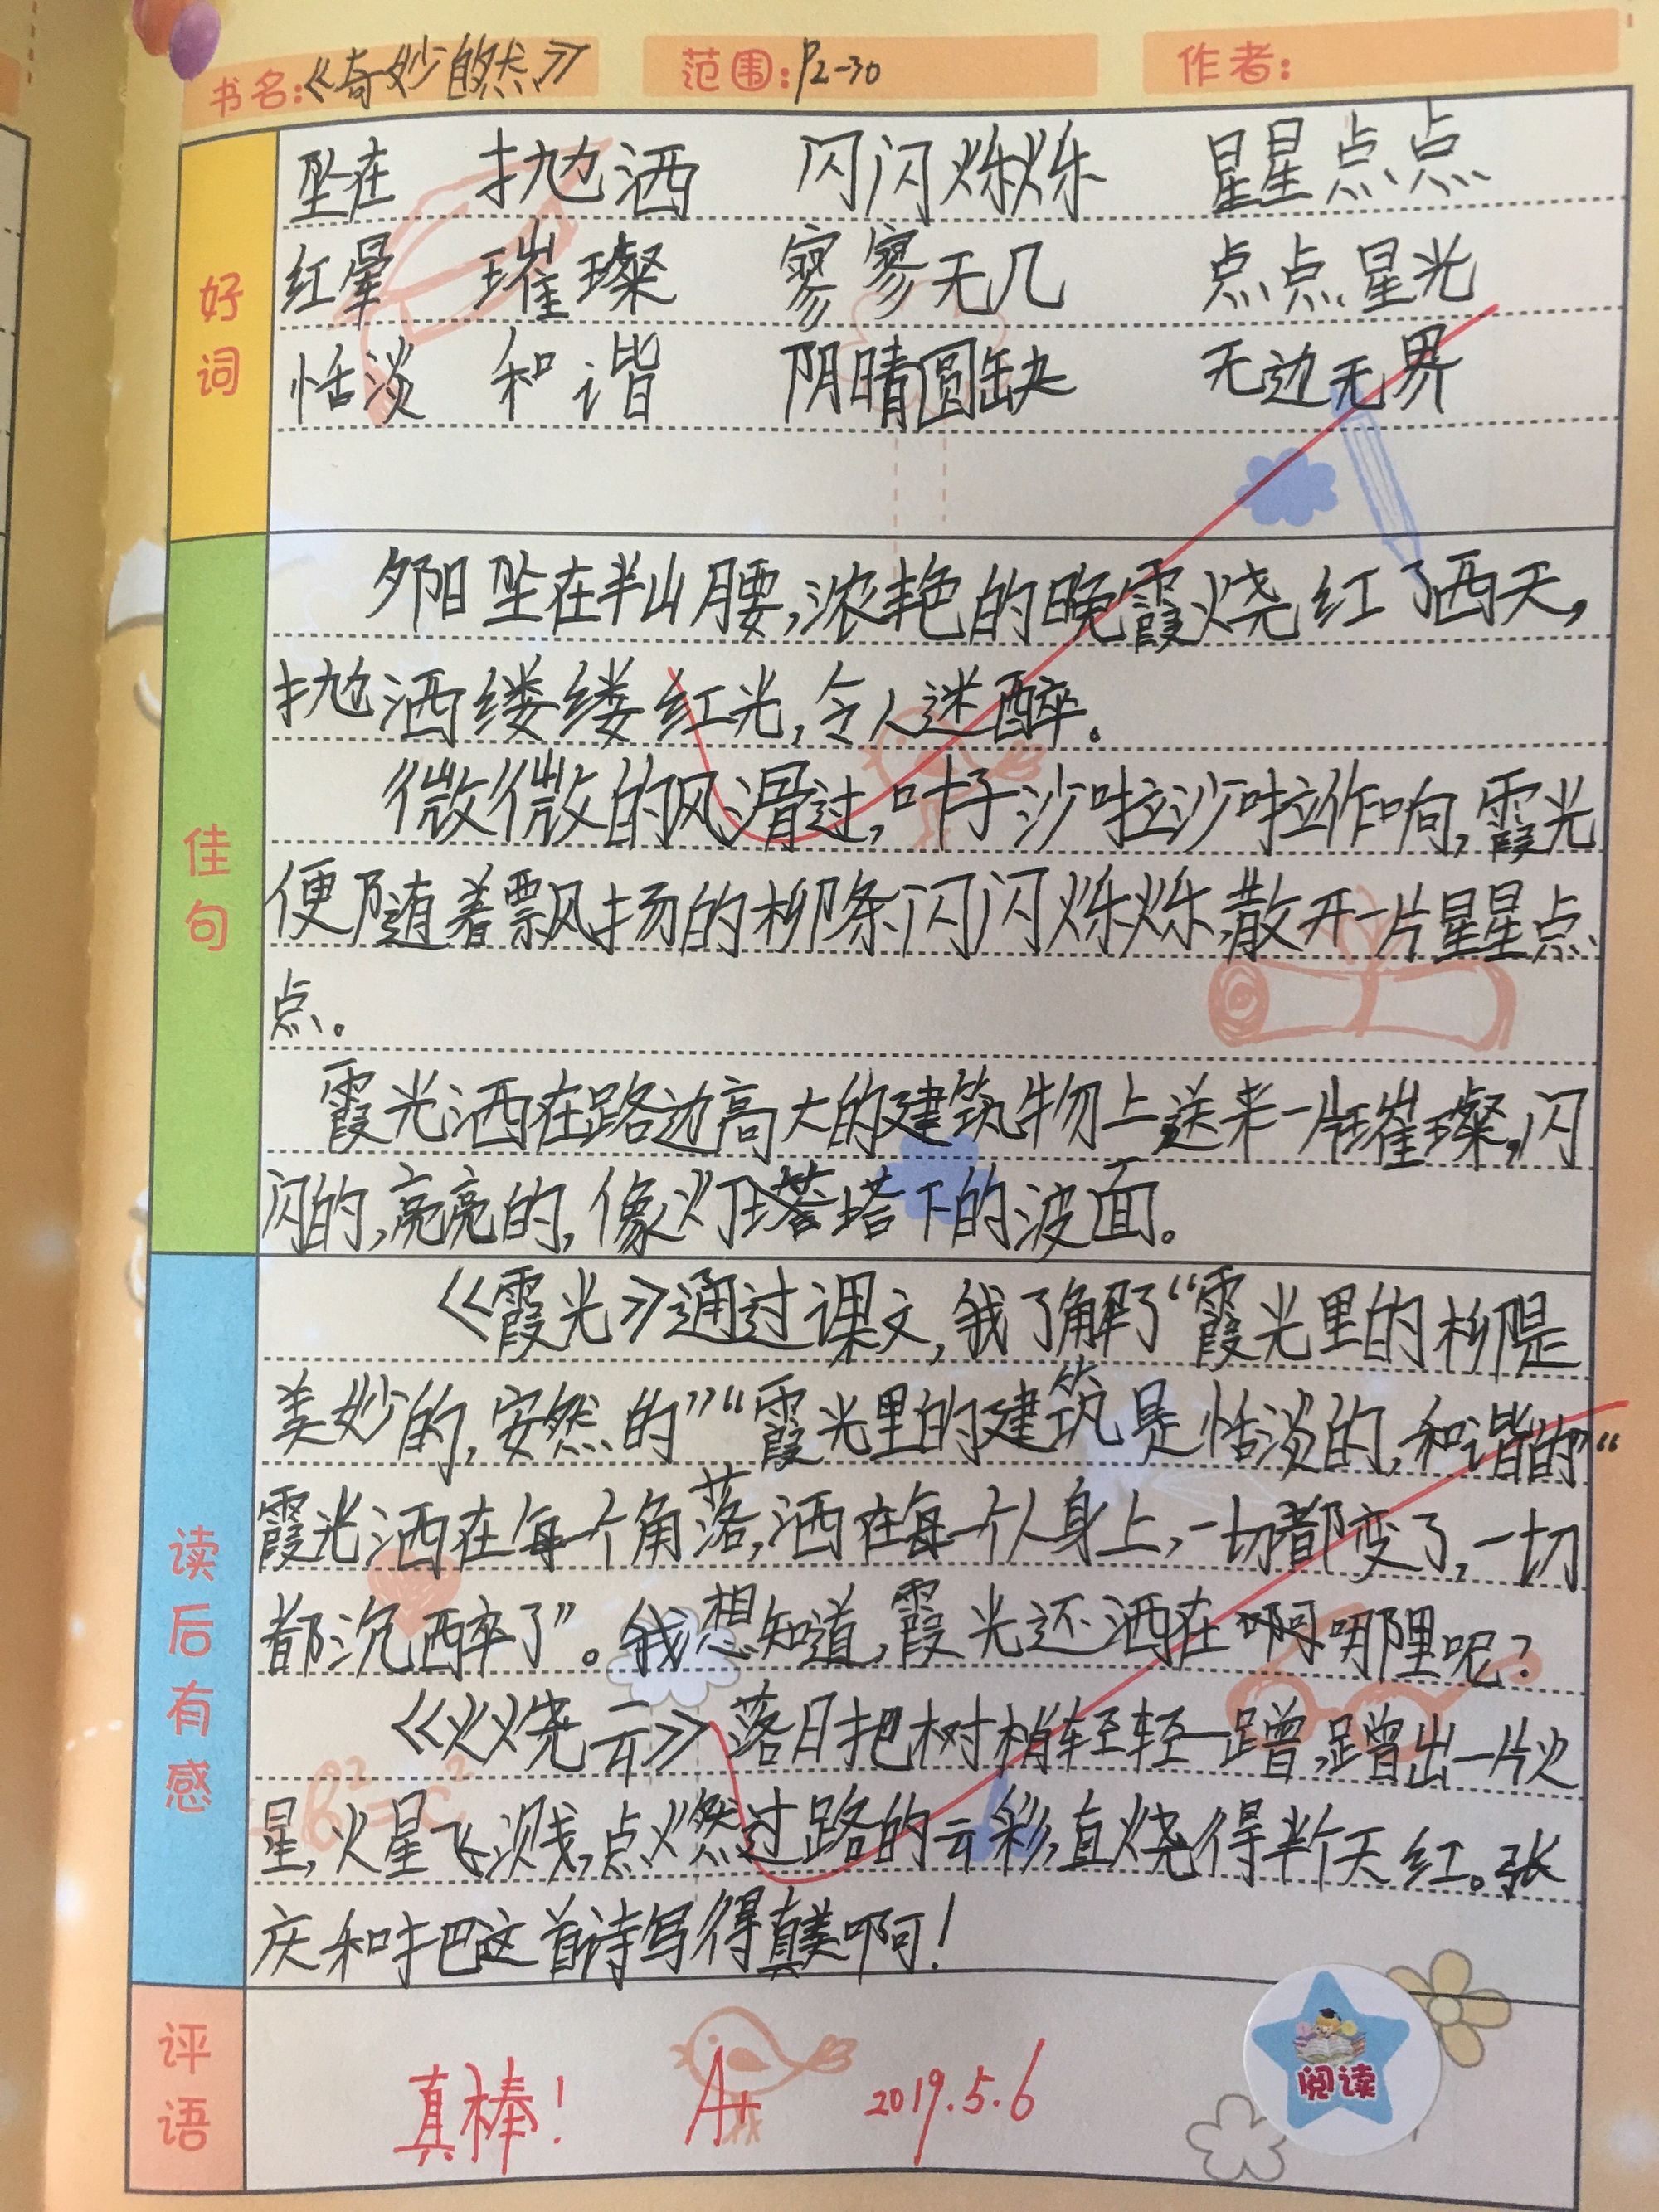 书名:《奇妙自然》 范围:P2-30 作者:
好词
坠在 抛洒 闪闪烁烁 星星点点
红晕 璀璨 寥寥无几 点点星光
恬淡 和谐 阴晴圆缺 无边无界
佳句
夕阳坠在半山腰,浓艳的晚霞烧红了西天,
抛洒缕缕红光,令人迷醉。
微微的风滑过,叶子沙啦沙啦作响,霞光
便随着飘扬的柳条闪闪烁烁,散开一片星星点
点。
霞光洒在路边高大的建筑物上送来一片璀璨,闪
闪的,亮亮的,像灯塔下的波面。
读后有感
《霞光》通过课文,我了解了“霞光里的柳是
美妙的,安然的”“霞光里的建筑是恬淡的,和谐的”“
霞光洒在每一个角落,洒在每一个人身上,一切都变了,一切
都沉醉了”。我想知道,霞光还洒在啊哪里呢?
《火烧云》落日把树梢轻轻一蹭,蹭出一片火
星,火星飞溅,点燃过路的云彩,直烧得半个天红。张
庆和把这首诗写得真美啊!
评语
真棒! A+ 2019.5.6
阅读